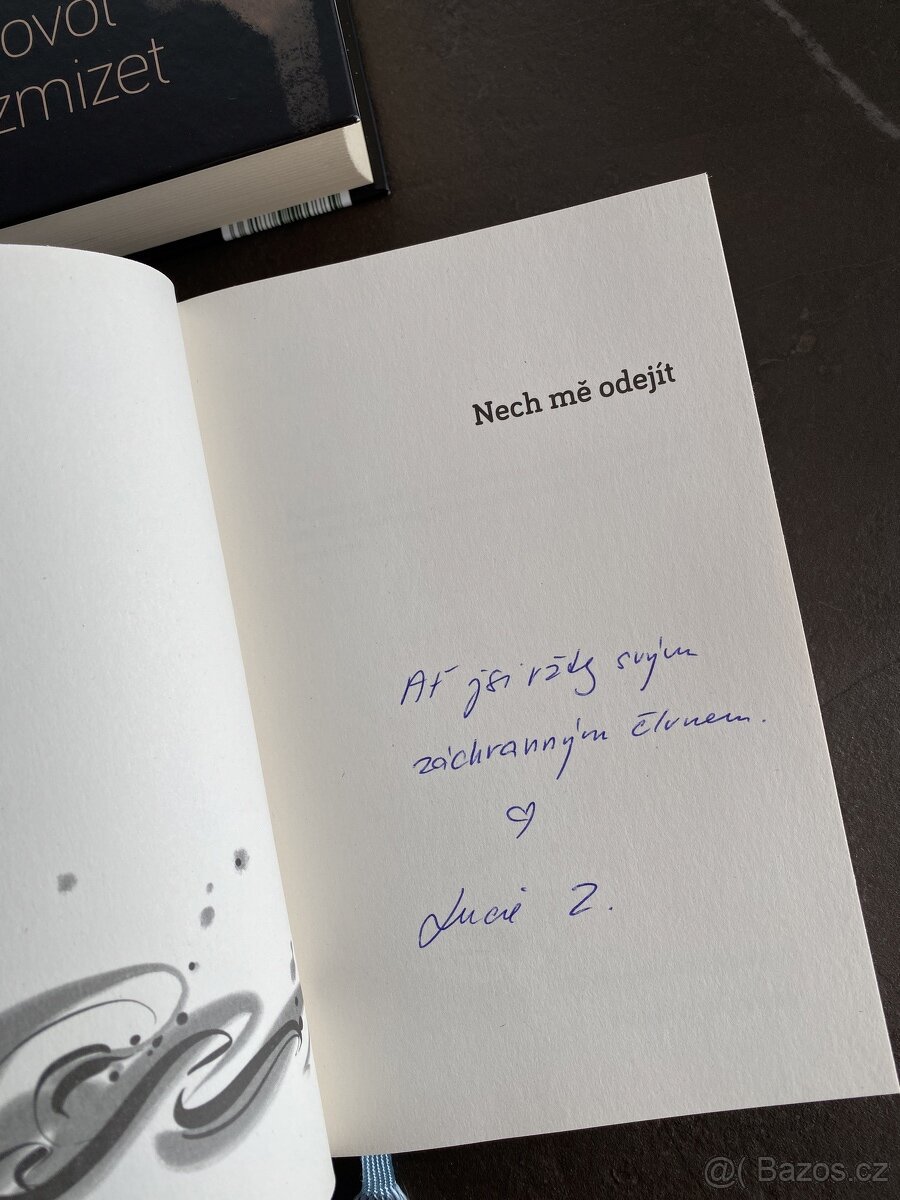 ovol
zmizet
Nech mě odejít
Ať jsi vždy svým
záchranným člunem.
Lucie Z.
@( Bazos.cz